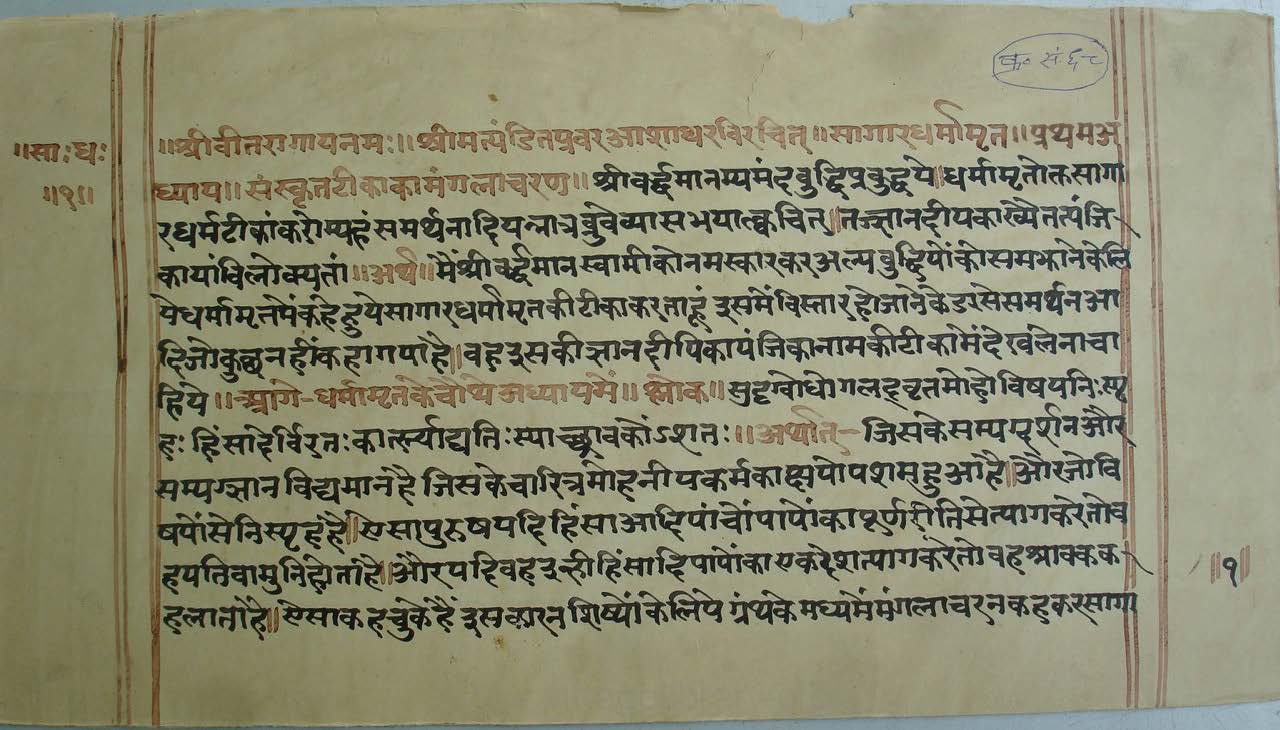 क्र॰ सं॰ ६८
॥साः धः
॥१॥
॥श्रीवीतरागायनमः॥ श्रीमत्पंडितप्रवरआशाधरविरचित्॥ सागारधर्मामृत॥ प्रथमअ
ध्याय॥ संस्कृतटीकाकामंगलाचरण॥ श्रीवर्द्धमानम्यमंदबुद्धिप्रबुद्धये॥ धर्मामृतोक्तसागा
रधर्मटीकांकरोम्यहं समर्थनादियन्नात्रब्रुवेव्यासभयात्क्वचित्॥ तज्ज्ञानदीपकाख्यैतत्पंजि
कायांविलोक्यतां॥ अर्थ॥ मैंश्रीवर्द्धमानस्वामीकोनमस्कारकरअल्पबुद्धियोंकोसमझानेकेलि
येधर्मामृतमेंकहेहुयेसागारधर्मामृतकीटीकाकरताहूं इसमेंविस्तारहोजानेकेडरसेसमर्थनआ
दिजोकुछनहींकहागयाहै॥ वहइसकीज्ञानदीपिकापंजिकानामकीटीकामेंदेखलेनाचा
हिये॥ आगे-धर्मामृतकेचौथेअध्यायमें॥ श्लोक॥ सुदृग्बोधोगलद्वृतमोहोविषयनिःस्पृ
हः हिंसादेर्विरतः कार्त्स्न्याद्यतिः स्याच्छ्रावकोंऽशतः॥ अर्थात्- जिसकेसम्यग्दर्शनऔर
सम्यग्ज्ञानविद्यमानहै जिसकेचारित्रमोहनीयकर्मकाक्षयोपशमहुआहै॥ औरजोवि
षयोंसेनिस्पृहहै॥ ऐसापुरुषयदिहिंसाआदिपांचोंपापोंकापूर्णरीतिसेत्यागकरेतोव
हयतिवामुनिहोताहै॥ औरयदिवहइन्हीहिंसादिपापोंकाएकदेशत्यागकरेतोवहश्रावकक
हलाताहै॥ ऐसाकहचुकेहैं इसकारनशिष्योंकेलिये ग्रंथकेमध्यमेंमंगलाचरनकहकरसागा
॥१॥